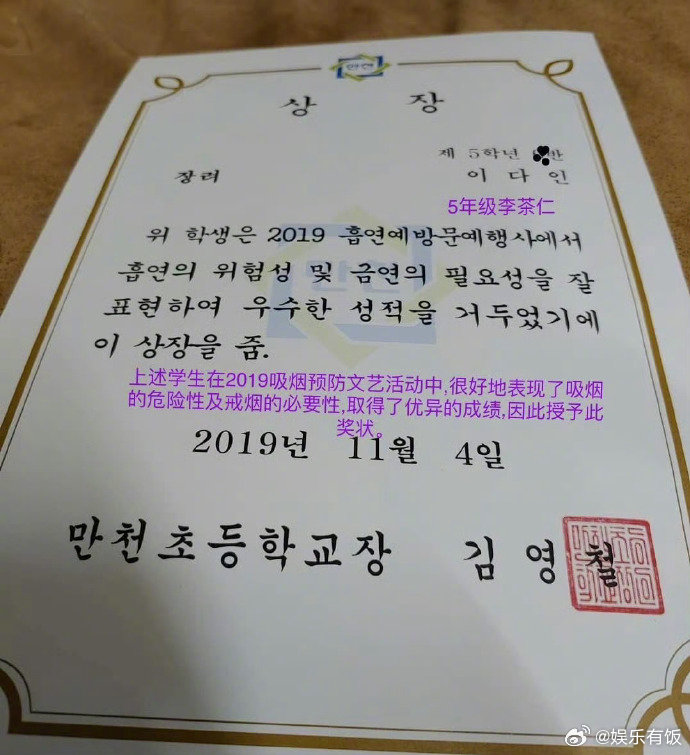 만천
상 장
제 5학년 반
장려
이 다 인
5年级李茶仁
위 학생은 2019 흡연예방문예행사에서
흡연의 위험성 및 금연의 필요성을 잘
표현하여 우수한 성적을 거두었기에
이 상장을 줌.
上述学生在2019吸烟预防文艺活动中,很好地表现了吸烟
的危险性及戒烟的必要性,取得了优异的成绩,因此授予此
奖状。
2019년 11월 4일
만천초등학교장 김 영 철
@娱乐有饭